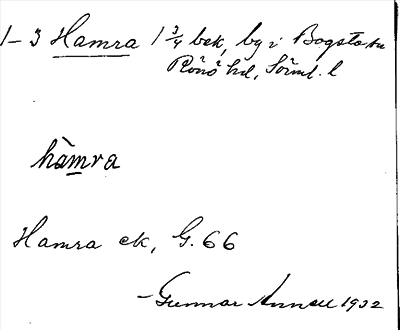 1-3 Hamra 1 3/4 bek, by i Bogsta sn
Rönö hd, Söml. l
hàmra
Hamra ek, G. 66
- Gunnar Annell 1932